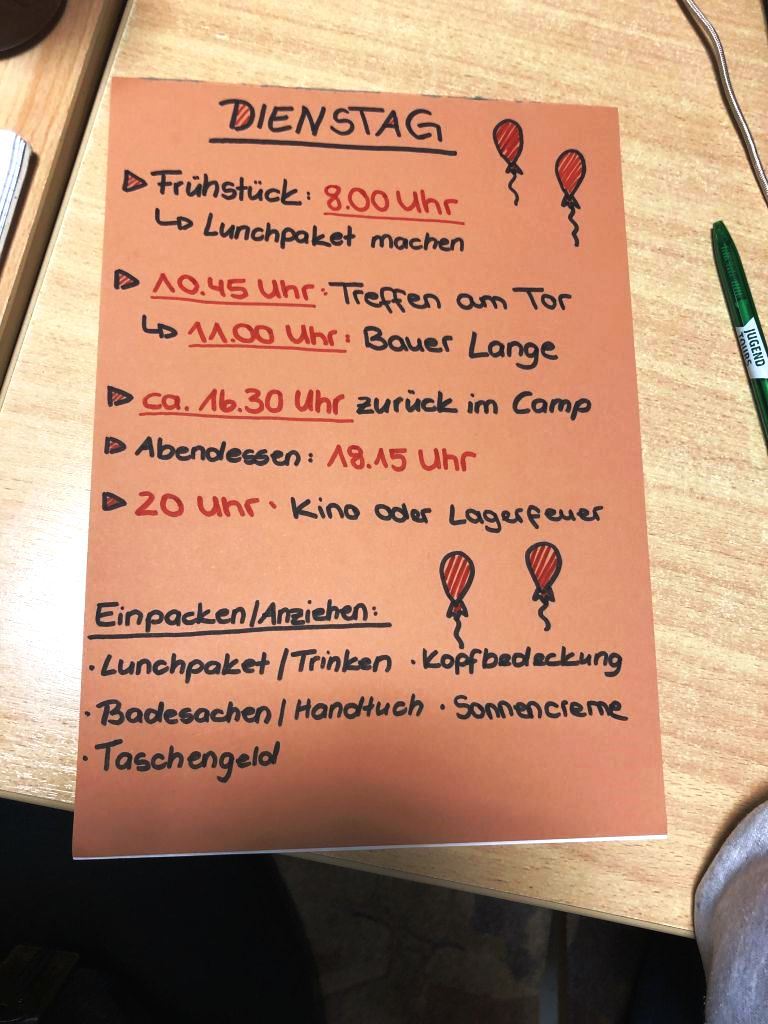 DIENSTAG
Frühstück: 8.00 Uhr
Lunchpaket machen
10.45 Uhr: Treffen am Tor
11.00 Uhr: Bauer Lange
ca. 16.30 Uhr zurück im Camp
Abendessen: 18.15 Uhr
20 Uhr · Kino oder Lagerfeuer
Einpacken/Anziehen:
· Lunchpaket / Trinken · Kopfbedeckung
· Badesachen / Handtuch · Sonnencreme
· Taschengeld
JUGEND
TOURS